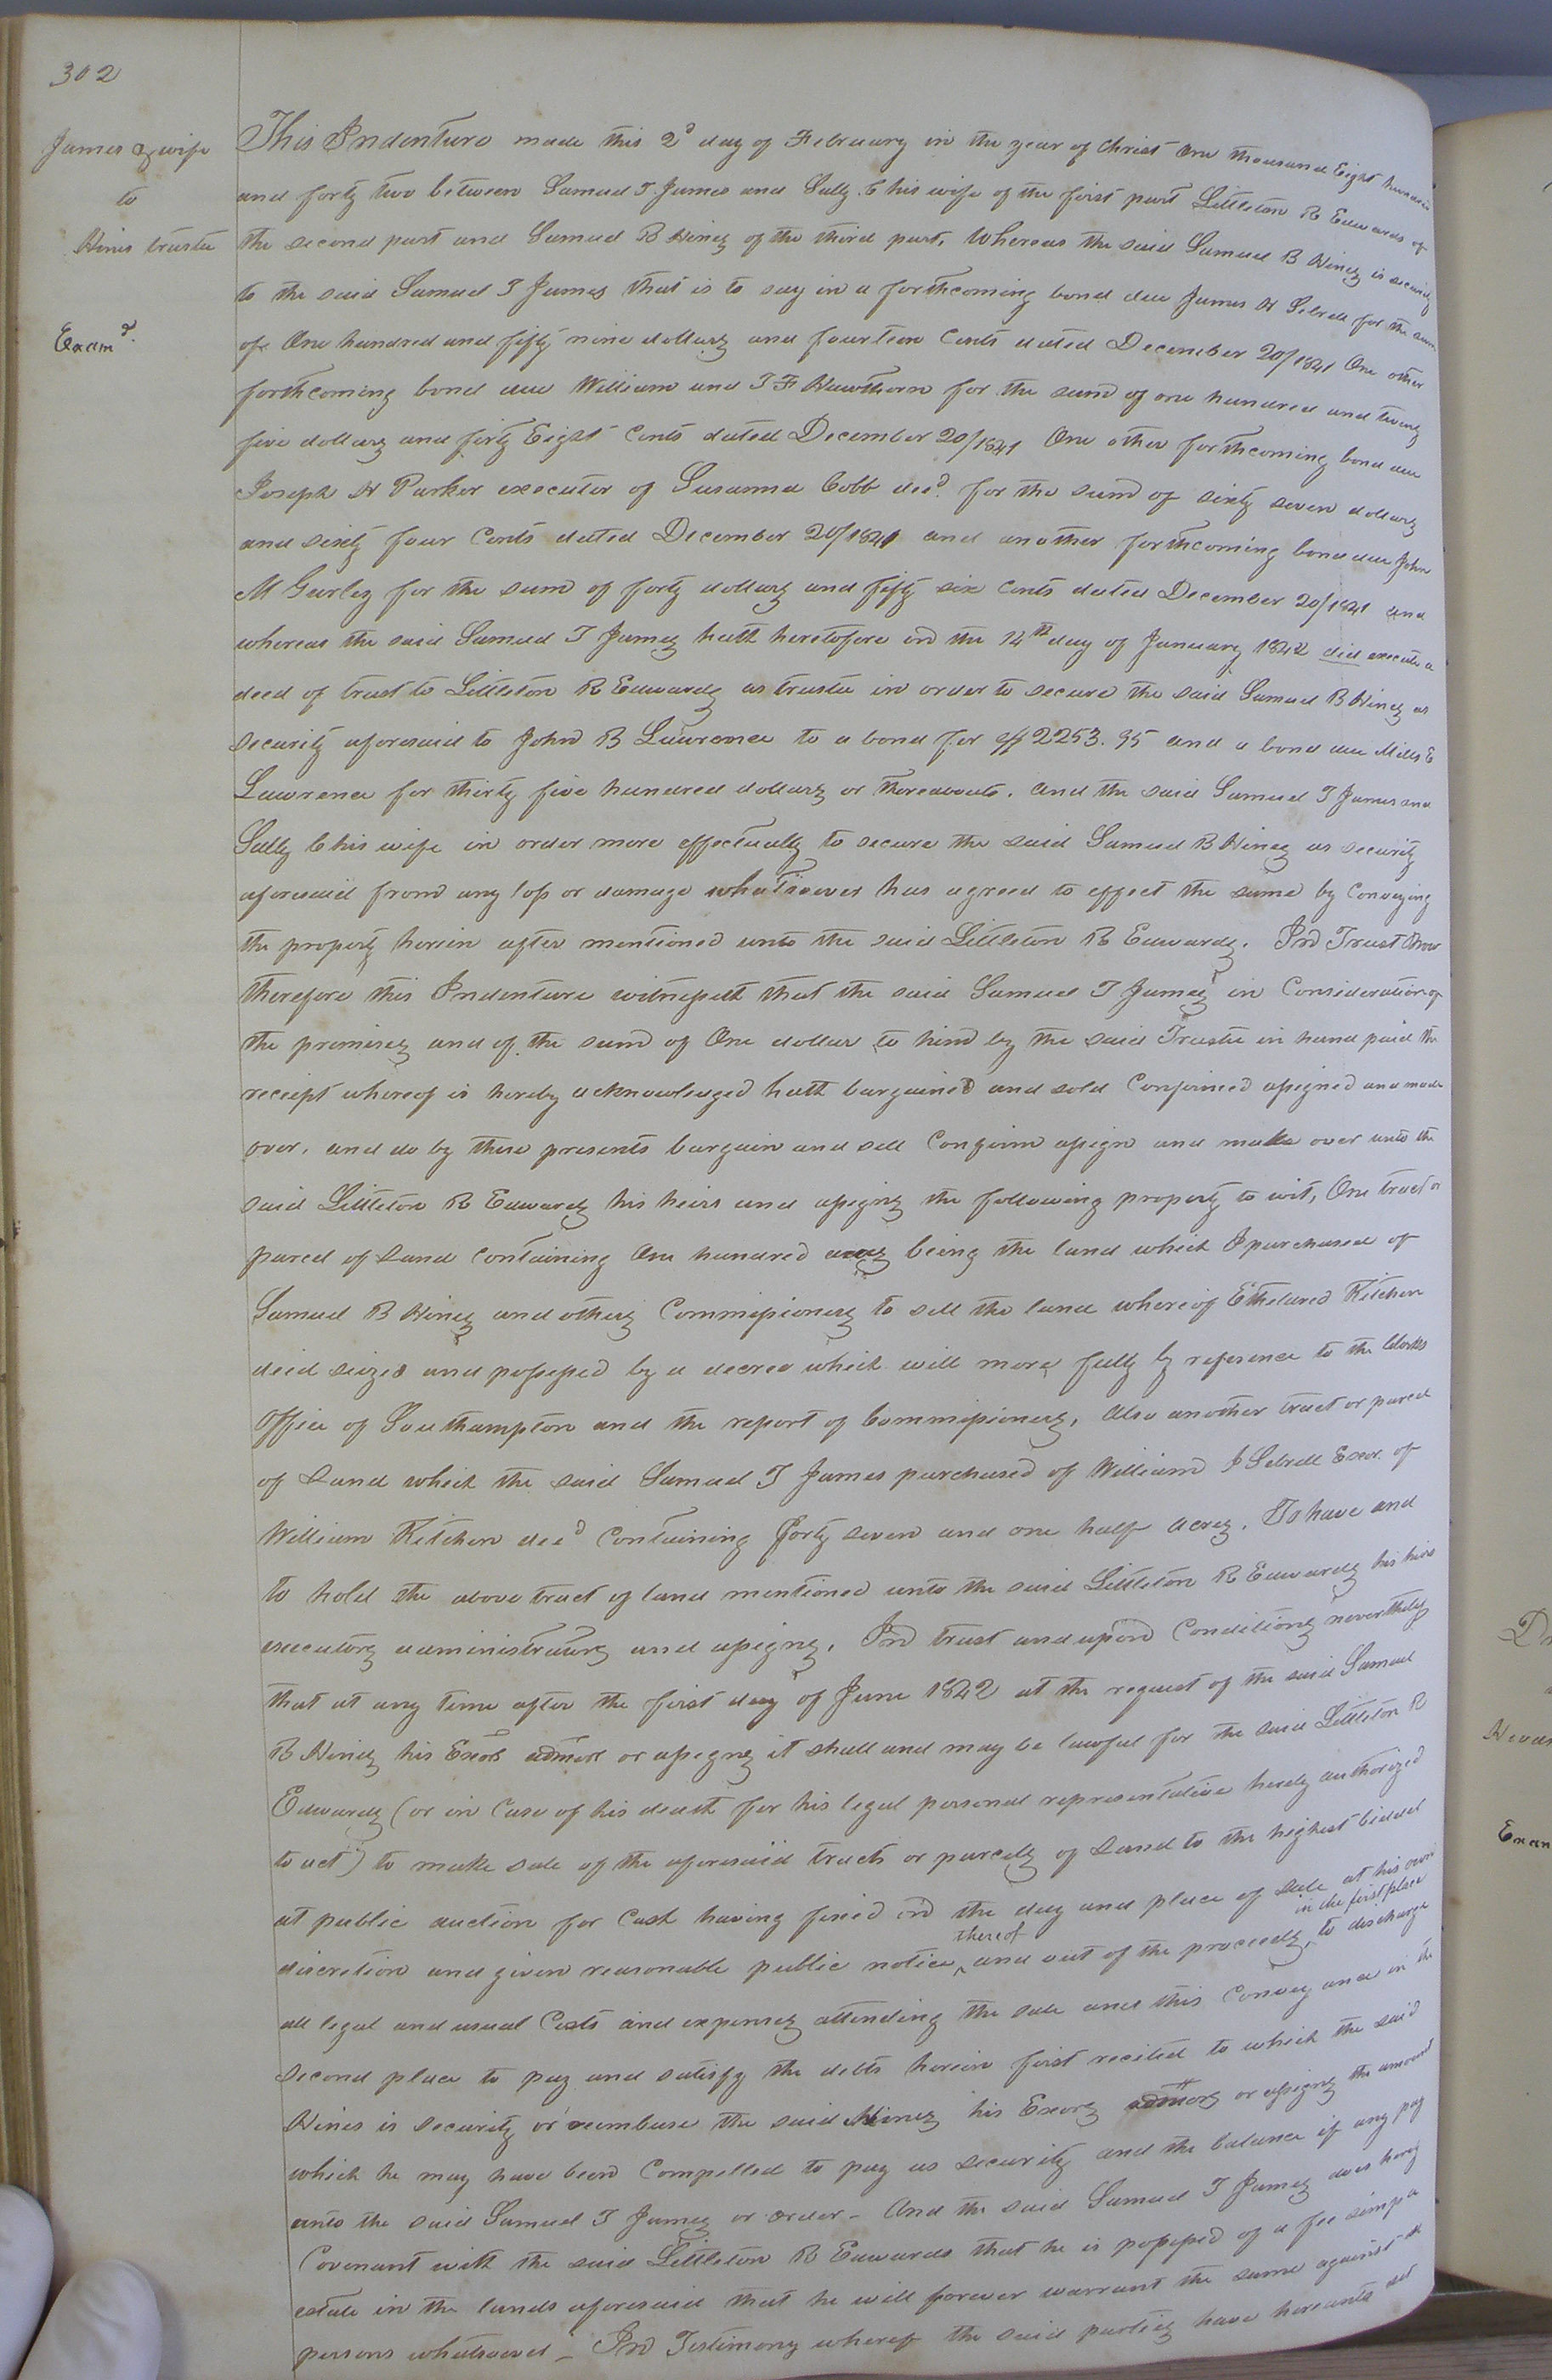 302
James & wife
to
Hines trustee
Exam<sup>d</sup>.
This Indenture made this 2<sup>d</sup> day of February in the year of Christ One thousand Eight hundred
and forty two between Samuel T James and Sally C his wife of the first part Littleton R Edwards of
the second part and Samuel B Hines of the third part, Whereas the said Samuel B Hines is security
to the said Samuel T James that is to say in a forthcoming bond due James H Sebrell for the sum
of One hundred and fifty nine dollars and fourteen Cents dated December 20/1841 One other
forthcoming bond due William and J F Hawthorn for the sum of one hundred and twenty
five dollars and fifty Eight Cents dated December 20/1841 One other forthcoming bond due
Joseph H Parker executor of Susanna Cobb dec<sup>d</sup>. for the sum of sixty seven dollars
and sixty four Cents dated December 20/1841 and another forthcoming bond due John
M Gurley for the sum of forty dollars and fifty six Cents dated December 20/1841 and
whereas the said Samuel T James hath heretofore on the 14<sup>th</sup> day of January 1842 did execute a
deed of trust to Littleton R Edwards as trustee in order to secure the said Samuel B Hines as
security aforesaid to John B Lawrence to a bond for $2253.95 and a bond due Mills E
Lawrence for thirty five hundred dollars or thereabouts. and the said Samuel T James and
Sally C his wife in order more effectually to secure the said Samuel B Hines as security
aforesaid from any loss or damage whatsoever has agreed to effect the same by Conveying
the property herein after mentioned unto the said Littleton R Edwards. In Trust Now
therefore this Indenture witnesseth that the said Samuel T James in Consideration of
the premises and of the sum of One dollar to him by the said Trustee in hand paid the
receipt whereof is hereby acknowledged hath bargained and sold Confirmed assigned and made
over, and do by these presents bargain and sell Confirm assign and make over unto the
said Littleton R Edwards his heirs and assigns the following property to wit, One tract or
parcel of Land Containing One hundred acres being the land which I purchased of
Samuel B Hines and others Commissioners to sell the land whereof Etheldred Kitchen
died seized and possessed by a decree which will more fully by reference to the Clerks
Office of Southampton and the report of Commissioners, Also another tract or parcel
of Land which the said Samuel T James purchased of William J Sebrell Exor. of
William Kitchen dec<sup>d</sup> Containing forty seven and one half acres. To have and
to hold the above tract of land mentioned unto the said Littleton R Edwards his heirs
executors administrators and assigns. In trust and upon Conditions nevertheless
that at any time after the first day of June 1842 at the request of the said Samuel
B Hines his Exors admors or assigns it shall and may be lawful for the said Littleton R
Edwards (or in Case of his death for his legal personal representative hereby authorized
to act) to make sale of the aforesaid tracts or parcels of Land to the highest bidder
at public auction for Cash having fixed on the day and place of sale at his own
discretion and given reasonable public notice thereof and out of the proceeds in the first place to discharge
all legal and usual Costs and expenses attending the sale and this Conveyance in the
second place to pay and satisfy the debts herein first recited to which the said
Hines is security or reimburse the said Hines his Exors admors or assigns the amount
which he may have been Compelled to pay as security and the balance if any pay
unto the said Samuel T James or order - And the said Samuel T James does hereby
Covenant with the said Littleton R Edwards that he is possessed of a fee simple
estate in the lands aforesaid that he will forever warrant the same against
persons whatsoever - In Testimony whereof the said parties have hereunto set